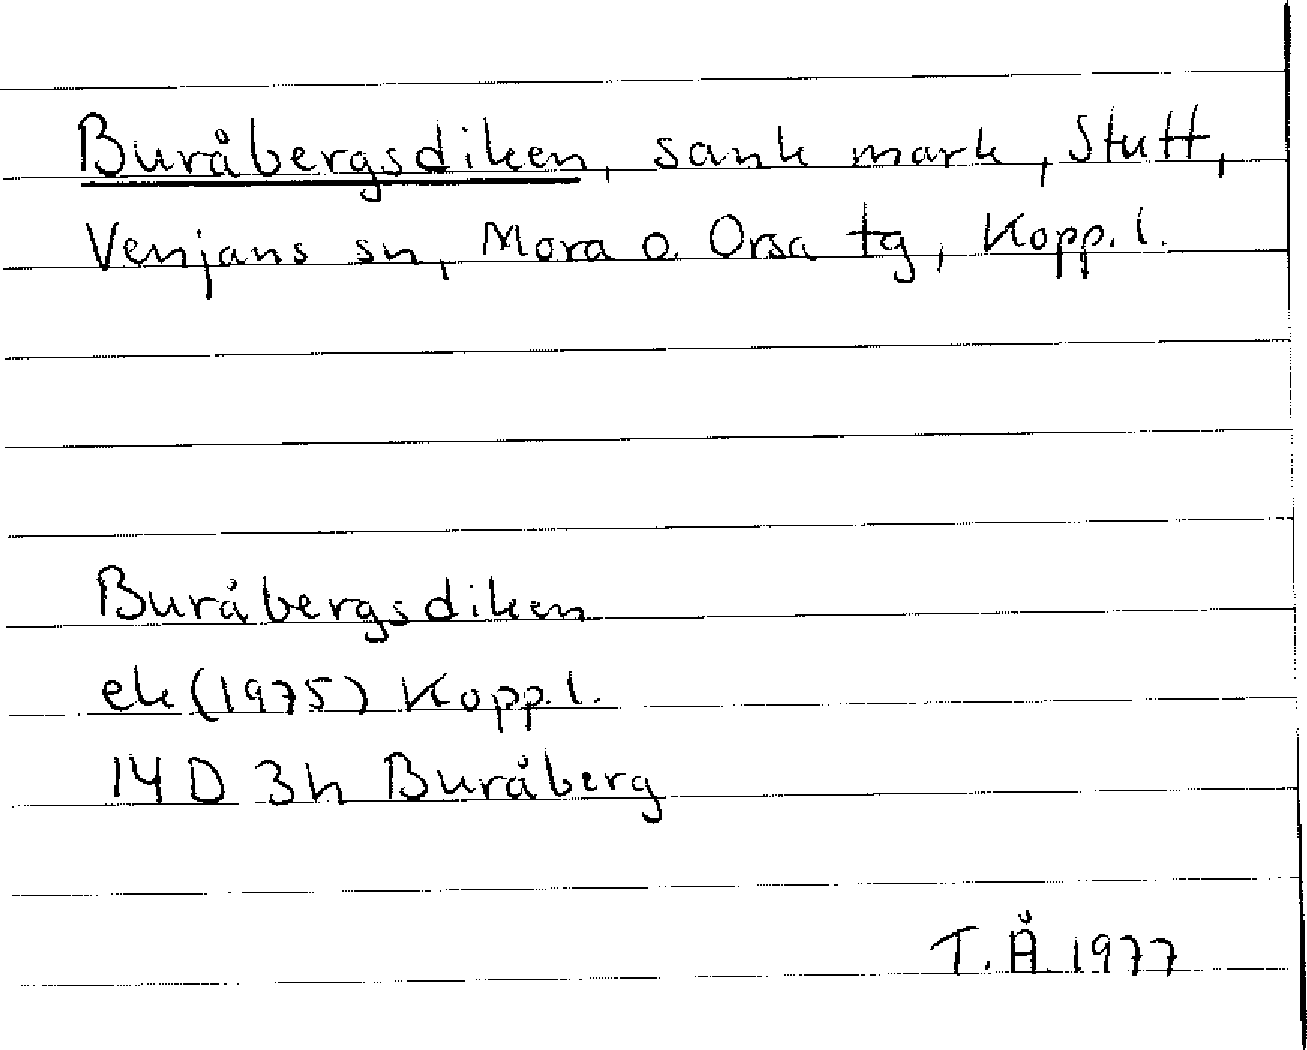 Buråbergsdiken, sank mark, Stutt,
Venjans sn, Mora o. Orsa tg, Kopp. l.
Buråbergsdiken
ek (1975) Kopp. l.
14 D 3h Buråberg
T. Å. 1977